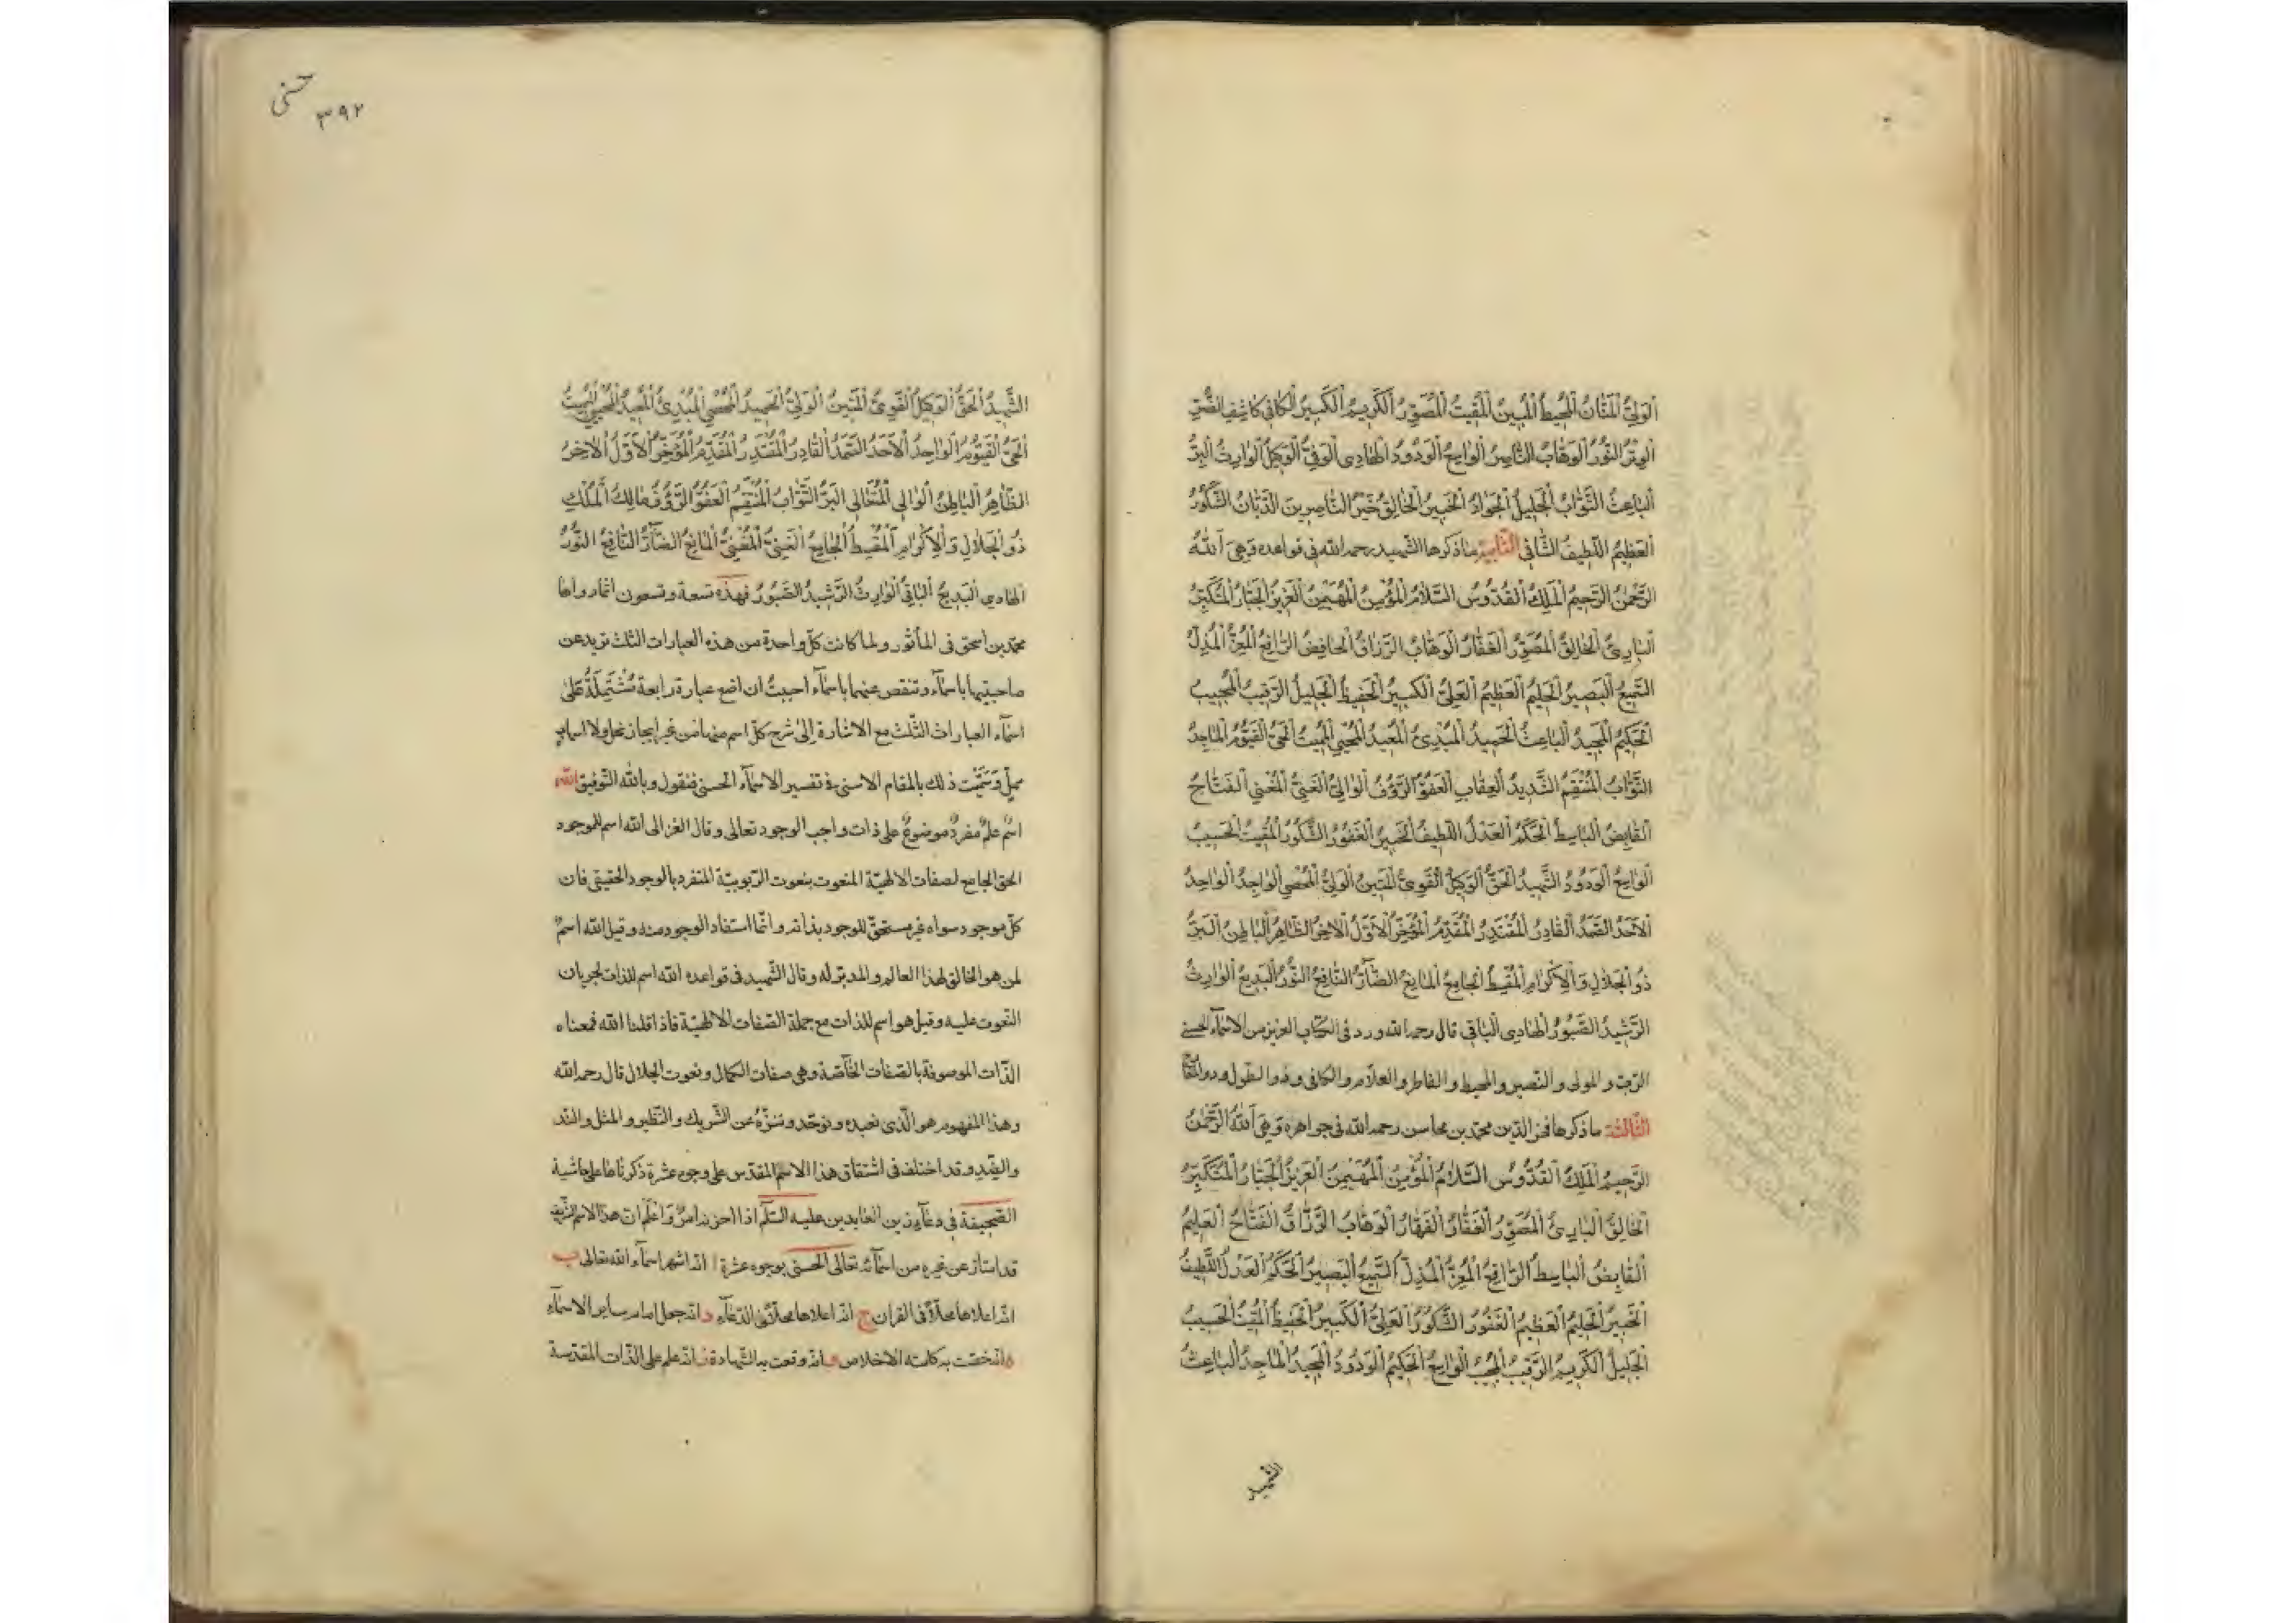 الْوَلِيُّ الْمَنَّانُ الْمُحِيطُ الْمُبِينُ الْمُقِيتُ الْمُصَوِّرُ الْكَرِيمُ الْكَبِيرُ الْكَافِي كَاشِفُ الضُّرِّ
الْوِتْرُ النُّورُ الْوَهَّابُ النَّاصِرُ الْوَاسِعُ الْوَدُودُ الْهَادِي الْوَفِيُّ الْوَكِيلُ الْوَارِثُ الْبَرُّ
الْبَاعِثُ التَّوَّابُ الْجَلِيلُ الْجَوَادُ الْخَبِيرُ الْخَالِقُ خَيْرُ النَّاصِرِينَ الدَّيَّانُ الشَّكُورُ
الْعَظِيمُ اللَّطِيفُ الشَّافِي الثانية ما ذكرها الشهيد رحمه الله في قواعده وهي اَللّٰهُ
الرَّحْمٰنُ الرَّحِيمُ الْمَلِكُ الْقُدُّوسُ السَّلَامُ الْمُؤْمِنُ الْمُهَيْمِنُ الْعَزِيزُ الْجَبَّارُ الْمُتَكَبِّرُ
الْبَارِئُ الْخَالِقُ الْمُصَوِّرُ الْغَفَّارُ الْوَهَّابُ الرَّزَّاقُ الْخَافِضُ الرَّافِعُ الْمُعِزُّ الْمُذِلُّ
السَّمِيعُ الْبَصِيرُ الْحَلِيمُ الْعَظِيمُ الْعَلِيُّ الْكَبِيرُ الْحَفِيظُ الْجَلِيلُ الرَّقِيبُ الْمُجِيبُ
الْحَكِيمُ الْمَجِيدُ الْبَاعِثُ الْحَمِيدُ الْمُبْدِئُ الْمُعِيدُ الْمُحْيِي الْمُمِيتُ الْحَيُّ الْقَيُّومُ الْمَاجِدُ
التَّوَّابُ الْمُنْتَقِمُ الشَّدِيدُ الْعِقَابِ الْعَفُوُّ الرَّؤُفُ الْوَالِي الْغَنِيُّ الْمُغْنِي الْفَتَّاحُ
الْقَابِضُ الْبَاسِطُ الْحَكَمُ الْعَدْلُ اللَّطِيفُ الْخَبِيرُ الْغَفُورُ الشَّكُورُ الْمُقِيتُ الْحَسِيبُ
الْوَاسِعُ الْوَدُودُ الشَّهِيدُ الْحَقُّ الْوَكِيلُ الْقَوِيُّ الْمَتِينُ الْوَلِيُّ الْمُحْصِي الْوَاجِدُ الْوَاحِدُ
الْاَحَدُ الصَّمَدُ الْقَادِرُ الْمُقْتَدِرُ الْمُقَدِّمُ الْمُؤَخِّرُ الْاَوَّلُ الْاٰخِرُ الظَّاهِرُ الْبَاطِنُ الْبَرُّ
ذُو الْجَلَالِ وَالْاِكْرَامِ الْمُقْسِطُ الْجَامِعُ الْمَانِعُ الضَّآرُّ النَّافِعُ النُّورُ الْبَدِيعُ الْوَارِثُ
الرَّشِيدُ الصَّبُورُ الْهَادِي الْبَاقِي قال رحمه الله ورد في الكتاب العزيز من الاسمآء الحسنى
الرب و المولى و النصير و المحيط و الفاطر و العلام و الكافي و ذو الطول و ذو المعارج
الثالثة ما ذكرها فخر الدين محمد بن محاسن رحمه الله في جواهره وَهِيَ اَللّٰهُ الرَّحْمٰنُ
الرَّحِيمُ الْمَلِكُ الْقُدُّوسُ السَّلَامُ الْمُؤْمِنُ الْمُهَيْمِنُ الْعَزِيزُ الْجَبَّارُ الْمُتَكَبِّرُ
الْخَالِقُ الْبَارِئُ الْمُصَوِّرُ الْغَفَّارُ الْقَهَّارُ الْوَهَّابُ الرَّزَّاقُ الْفَتَّاحُ الْعَلِيمُ
الْقَابِضُ الْبَاسِطُ الرَّافِعُ الْمُعِزُّ الْمُذِلُّ السَّمِيعُ الْبَصِيرُ الْحَكَمُ الْعَدْلُ اللَّطِيفُ
الْخَبِيرُ الْحَلِيمُ الْعَظِيمُ الْغَفُورُ الشَّكُورُ الْعَلِيُّ الْكَبِيرُ الْحَفِيظُ الْمُقِيتُ الْحَسِيبُ
الْجَلِيلُ الْكَرِيمُ الرَّقِيبُ الْمُجِيبُ الْوَاسِعُ الْحَكِيمُ الْوَدُودُ الْمَجِيدُ الْمَاجِدُ الْبَاعِثُ
الشهيد
حسنى
٣٩٢
الشَّهِيدُ الْحَقُّ الْوَكِيلُ الْقَوِيُّ الْمَتِينُ الْوَلِيُّ الْحَمِيدُ الْمُحْصِي الْمُبْدِئُ الْمُعِيدُ الْمُحْيِي الْمُمِيتُ
الْحَيُّ الْقَيُّومُ الْوَاحِدُ الْاَحَدُ الصَّمَدُ الْقَادِرُ الْمُقْتَدِرُ الْمُقَدِّمُ الْمُؤَخِّرُ الْاَوَّلُ الْاٰخِرُ
الظَّاهِرُ الْبَاطِنُ الْوَالِي الْمُتَعَالِي الْبَرُّ التَّوَّابُ الْمُنْتَقِمُ الْعَفُوُّ الرَّؤُفُ مَالِكُ الْمُلْكِ
ذُو الْجَلَالِ وَالْاِكْرَامِ الْمُقْسِطُ الْجَامِعُ الْغَنِيُّ الْمُغْنِيُ الْمَانِعُ الضَّآرُّ النَّافِعُ النُّورُ
الْهَادِي الْبَدِيعُ الْبَاقِي الْوَارِثُ الرَّشِيدُ الصَّبُورُ فهذه تسعة وتسعون اسما رواها
محمد بن اسحق في المأثور ولما كانت كل واحدة من هذه العبارات الثلث تزيد عن
صاحبتيها باسمآء وتنقص عنهما باسمآء احببتُ ان اضع عبارة رابعة مُشْتَمِلَةً عَلَى
اسمآء العبارات الثلث مع الاشارة إلى شرح كل اسم منها من غير ايجاز مخل ولا اسهاب
ممل وَسَمَّيْت ذلك بالمقام الاسنى في تفسير الاسمآء الحسنى فنقول وبالله التوفيق الله
اسْمٌ علمٌ مفردٌ موضوعٌ على ذات واجب الوجود تعالى وقال الغزالى الله اسم للموجود
الحق الجامع لصفات الالهية المنعوت بنعوت الربوبية المتفرد بالوجود الحقيقي فان
كل موجود سواه غير مستحق للوجود بذاته وانما استفاد الوجود منه وقيل الله اسمٌ
لمن هو الخالق لهذا العالم والمدبر له وقال الشهيد في قواعده الله اسم للذات لجريان
النعوت عليه وقيل هو اسم للذات مع جملة الصفات الالهية فاذا قلنا الله فمعناه
الذات الموصوفة بالصفات الخآصة وهي صفات الكمال ونعوت الجلال قال رحمه الله
وهذا المفهوم هو الذى نعبده ونوحد وننزه عن الشريك والنظير والمثل والند
والضد وقد اختلف في اشتقاق هذا الاسم المقدس على وجوه عشرة ذكرناها على حاشية
الصحيفة في دعآء زين العابدين عليه السلم اذا احزنه امرٌ وَاعْلَم ان هذا الاسم الشريف
قد امتاز عن غيره من اسمآئه تعالى الحسنى بوجوه عشرة ا انه اشهر اسمآء الله تعالى ب
انه اعلاها محلاً في القرآن ج انه اعلاها محلاً في الدعآء د انه جعل امام ساير الاسمآء
ه انه خصت به كلمة الاخلاص و انه وقعت به الشهادة ز انه علم على الذات المقدسة